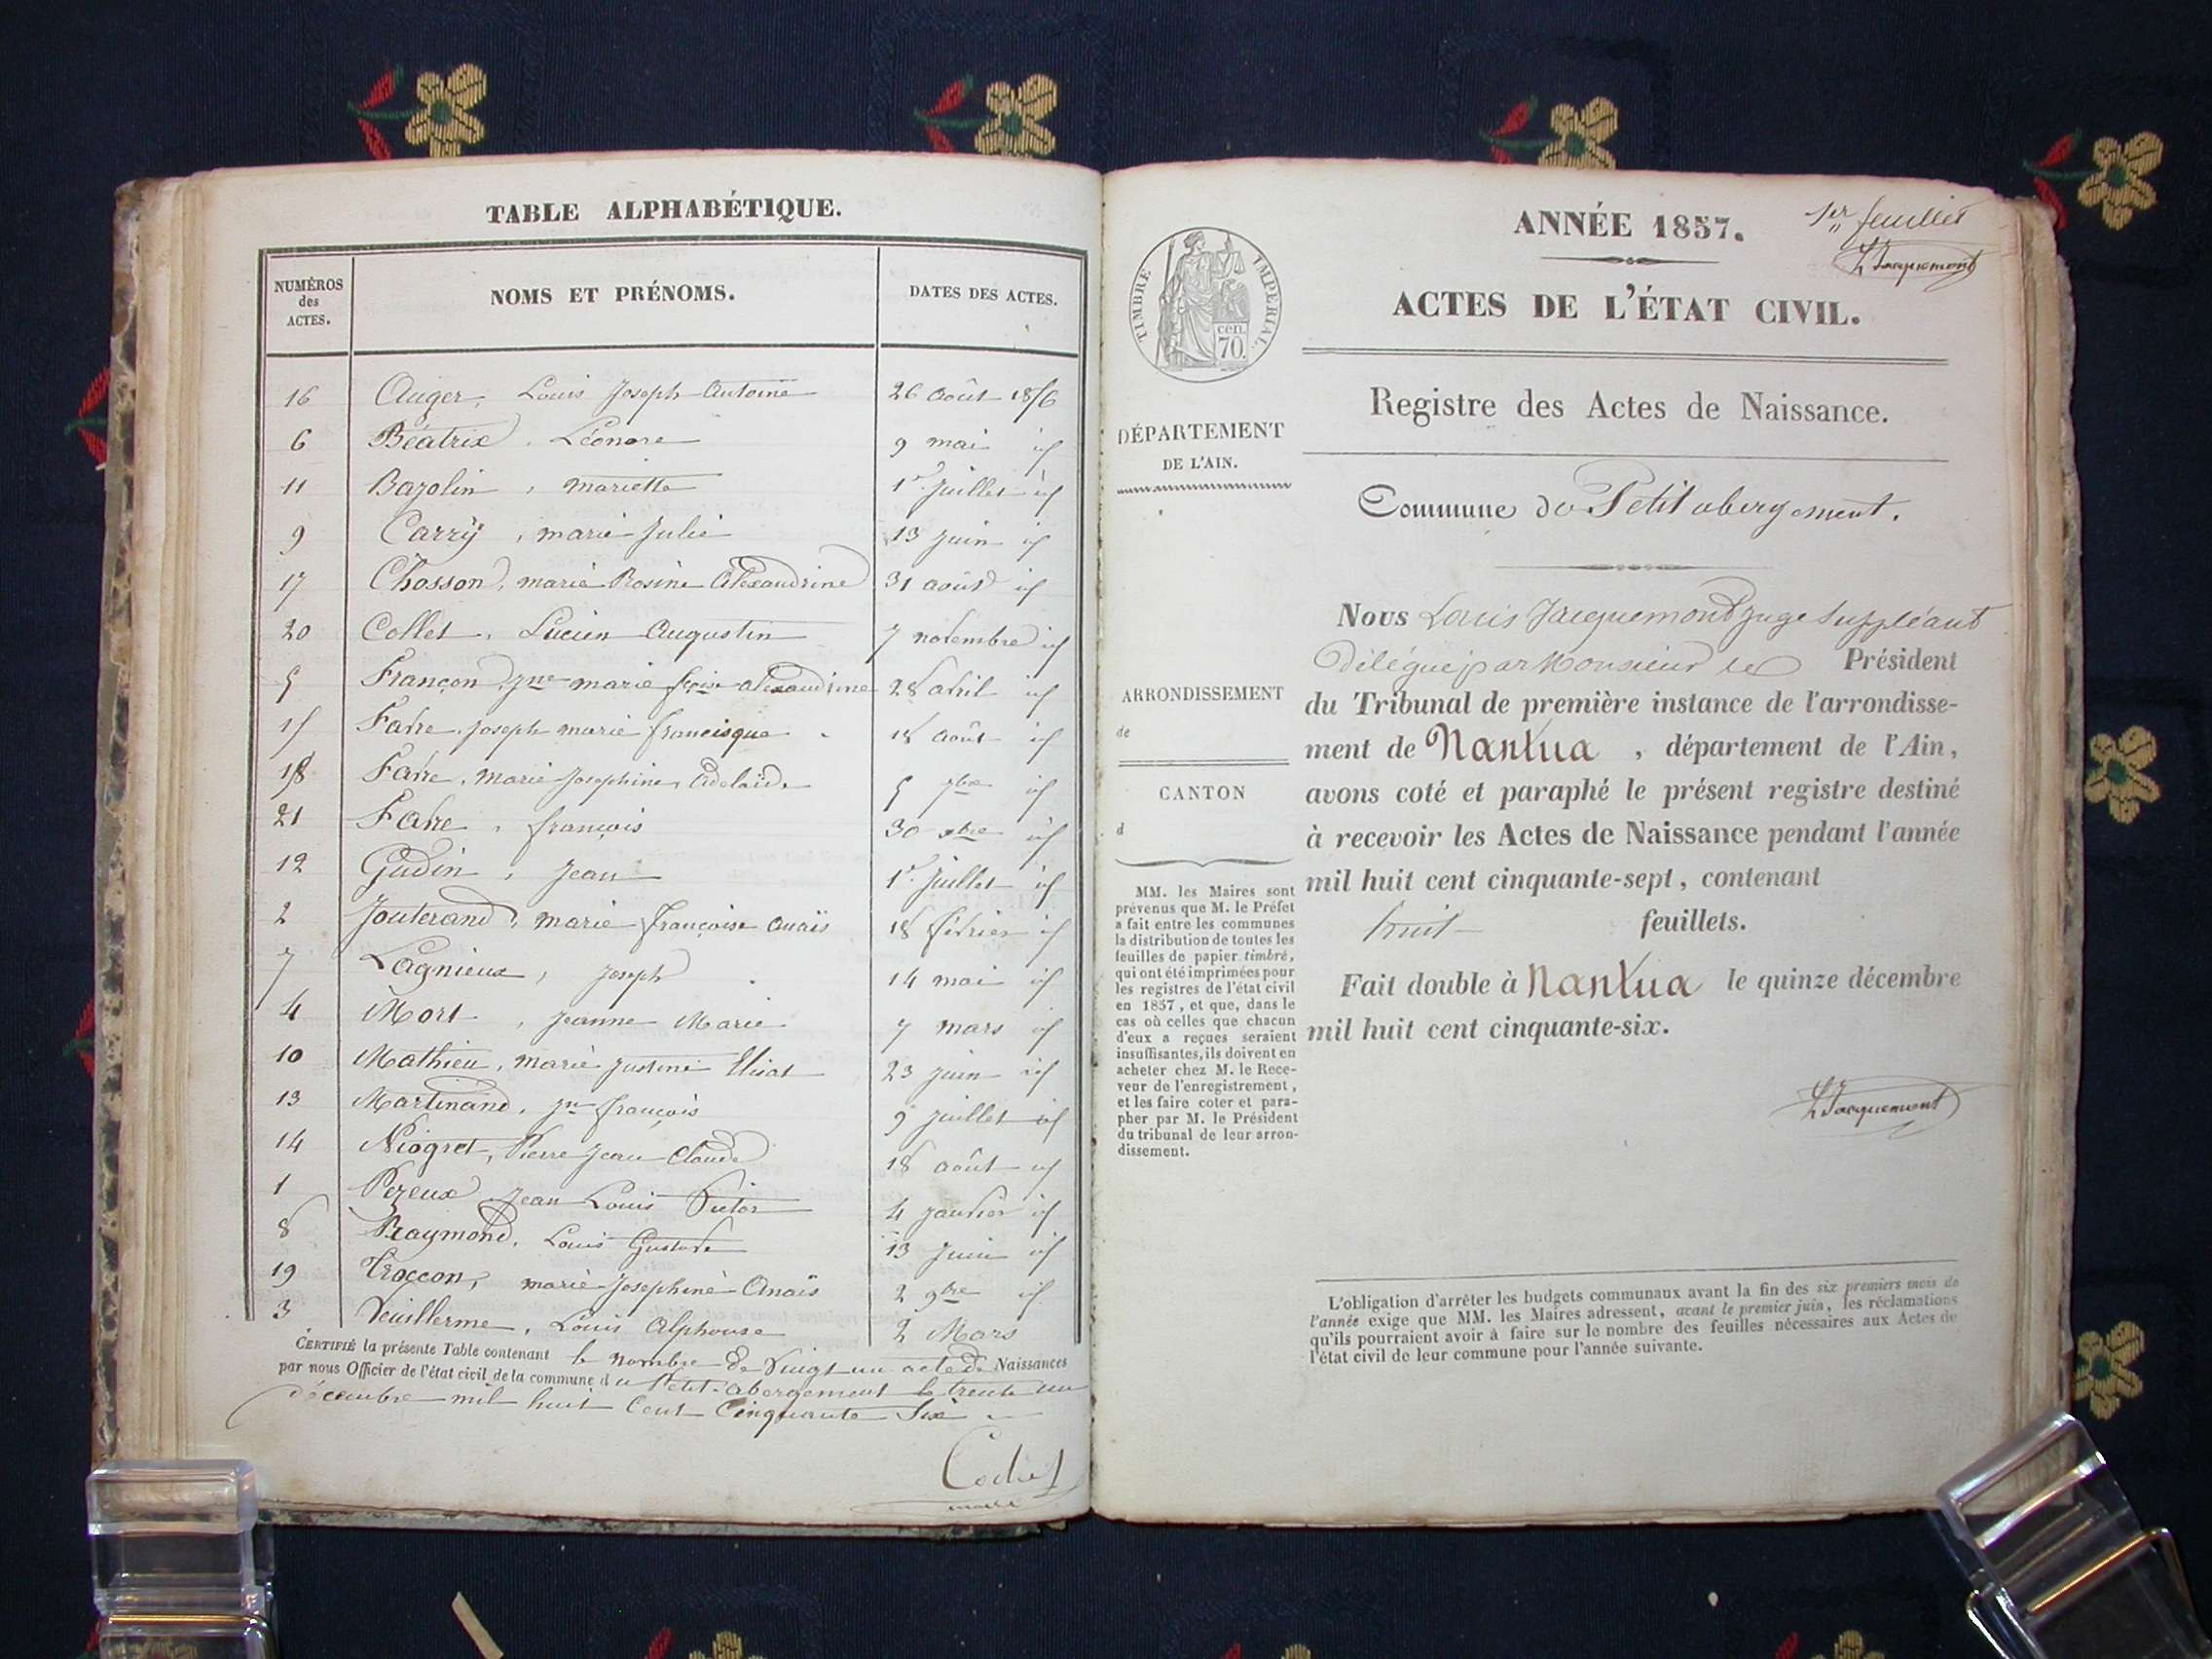 TABLE ALPHABÉTIQUE.
NUMÉROS
des
ACTES.
NOMS ET PRÉNOMS.
DATES DES ACTES.
16 Auger, Louis Joseph Antoine 26 août 1856
6 Béatrix, Léonore 9 mai id
11 Bazolin, mariette 1er Juillet id
9 Carry, marie Julie 13 juin id
17 Chosson, marie Rosine Alexandrine 31 août id
20 Collet, Lucien Augustin 7 novembre id
5 Françon, jne marie fçoise alexandrine 28 avril id
15 Favre, joseph marie francisque 18 août id
18 Favre, marie Josephine Adelaïde 5 7bre id
21 Favre, françois 30 xbre id
12 Gudin, Jean 1er Juillet id
2 Jouterand, marie françoise Anaïs 18 février id
7 Lagnieux, joseph 14 mai id
4 Mort, jeanne Marie 7 mars id
10 Mathieu, marie justine 23 juin id
13 Martinand, jn françois 9 juillet id
14 Niogret, Pierre Jean Claude 18 août id
1 Pereux Jean Louis Victor 4 janvier id
8 Raymond, Louis Gustave 13 Juin id
19 Troccon, marie Josephine Anaïs 2 9bre id
3 Vuillerme, Louis Alphonse 2 Mars
CERTIFIÉ la présente Table contenant le nombre de Vingt un acte de Naissances
par nous Officier de l'état civil de la commune du Petit-Abergement le trente un
décembre mil huit Cent Cinquante Six
maire
ANNÉE 1857.
1er feuillet
L Jacquemont
TIMBRE IMPÉRIAL.
cen.
70.
ACTES DE L'ÉTAT CIVIL.
Registre des Actes de Naissance.
DÉPARTEMENT
DE L'AIN.
Commune de Petit abergement.
ARRONDISSEMENT
de
CANTON
d
MM. les Maires sont
prévenus que M. le Préfet
a fait entre les communes
la distribution de toutes les
feuilles de papier timbré,
qui ont été imprimées pour
les registres de l'état civil
en 1857, et que, dans le
cas où celles que chacun
d'eux a reçues seraient
insuffisantes, ils doivent en
acheter chez M. le Rece-
veur de l'enregistrement,
et les faire coter et para-
pher par M. le Président
du tribunal de leur arron-
dissement.
Nous Louis Jacquemont Juge Suppléant
délégué par Monsieur le Président
du Tribunal de première instance de l'arrondisse-
ment de Nantua, département de l'Ain,
avons coté et paraphé le présent registre destiné
à recevoir les Actes de Naissance pendant l'année
mil huit cent cinquante-sept, contenant
huit feuillets.
Fait double à Nantua le quinze décembre
mil huit cent cinquante-six.
L Jacquemont
L'obligation d'arrêter les budgets communaux avant la fin des six premiers mois de
l'année exige que MM. les Maires adressent, avant le premier juin, les réclamations
qu'ils pourraient avoir à faire sur le nombre des feuilles nécessaires aux Actes de
l'état civil de leur commune pour l'année suivante.